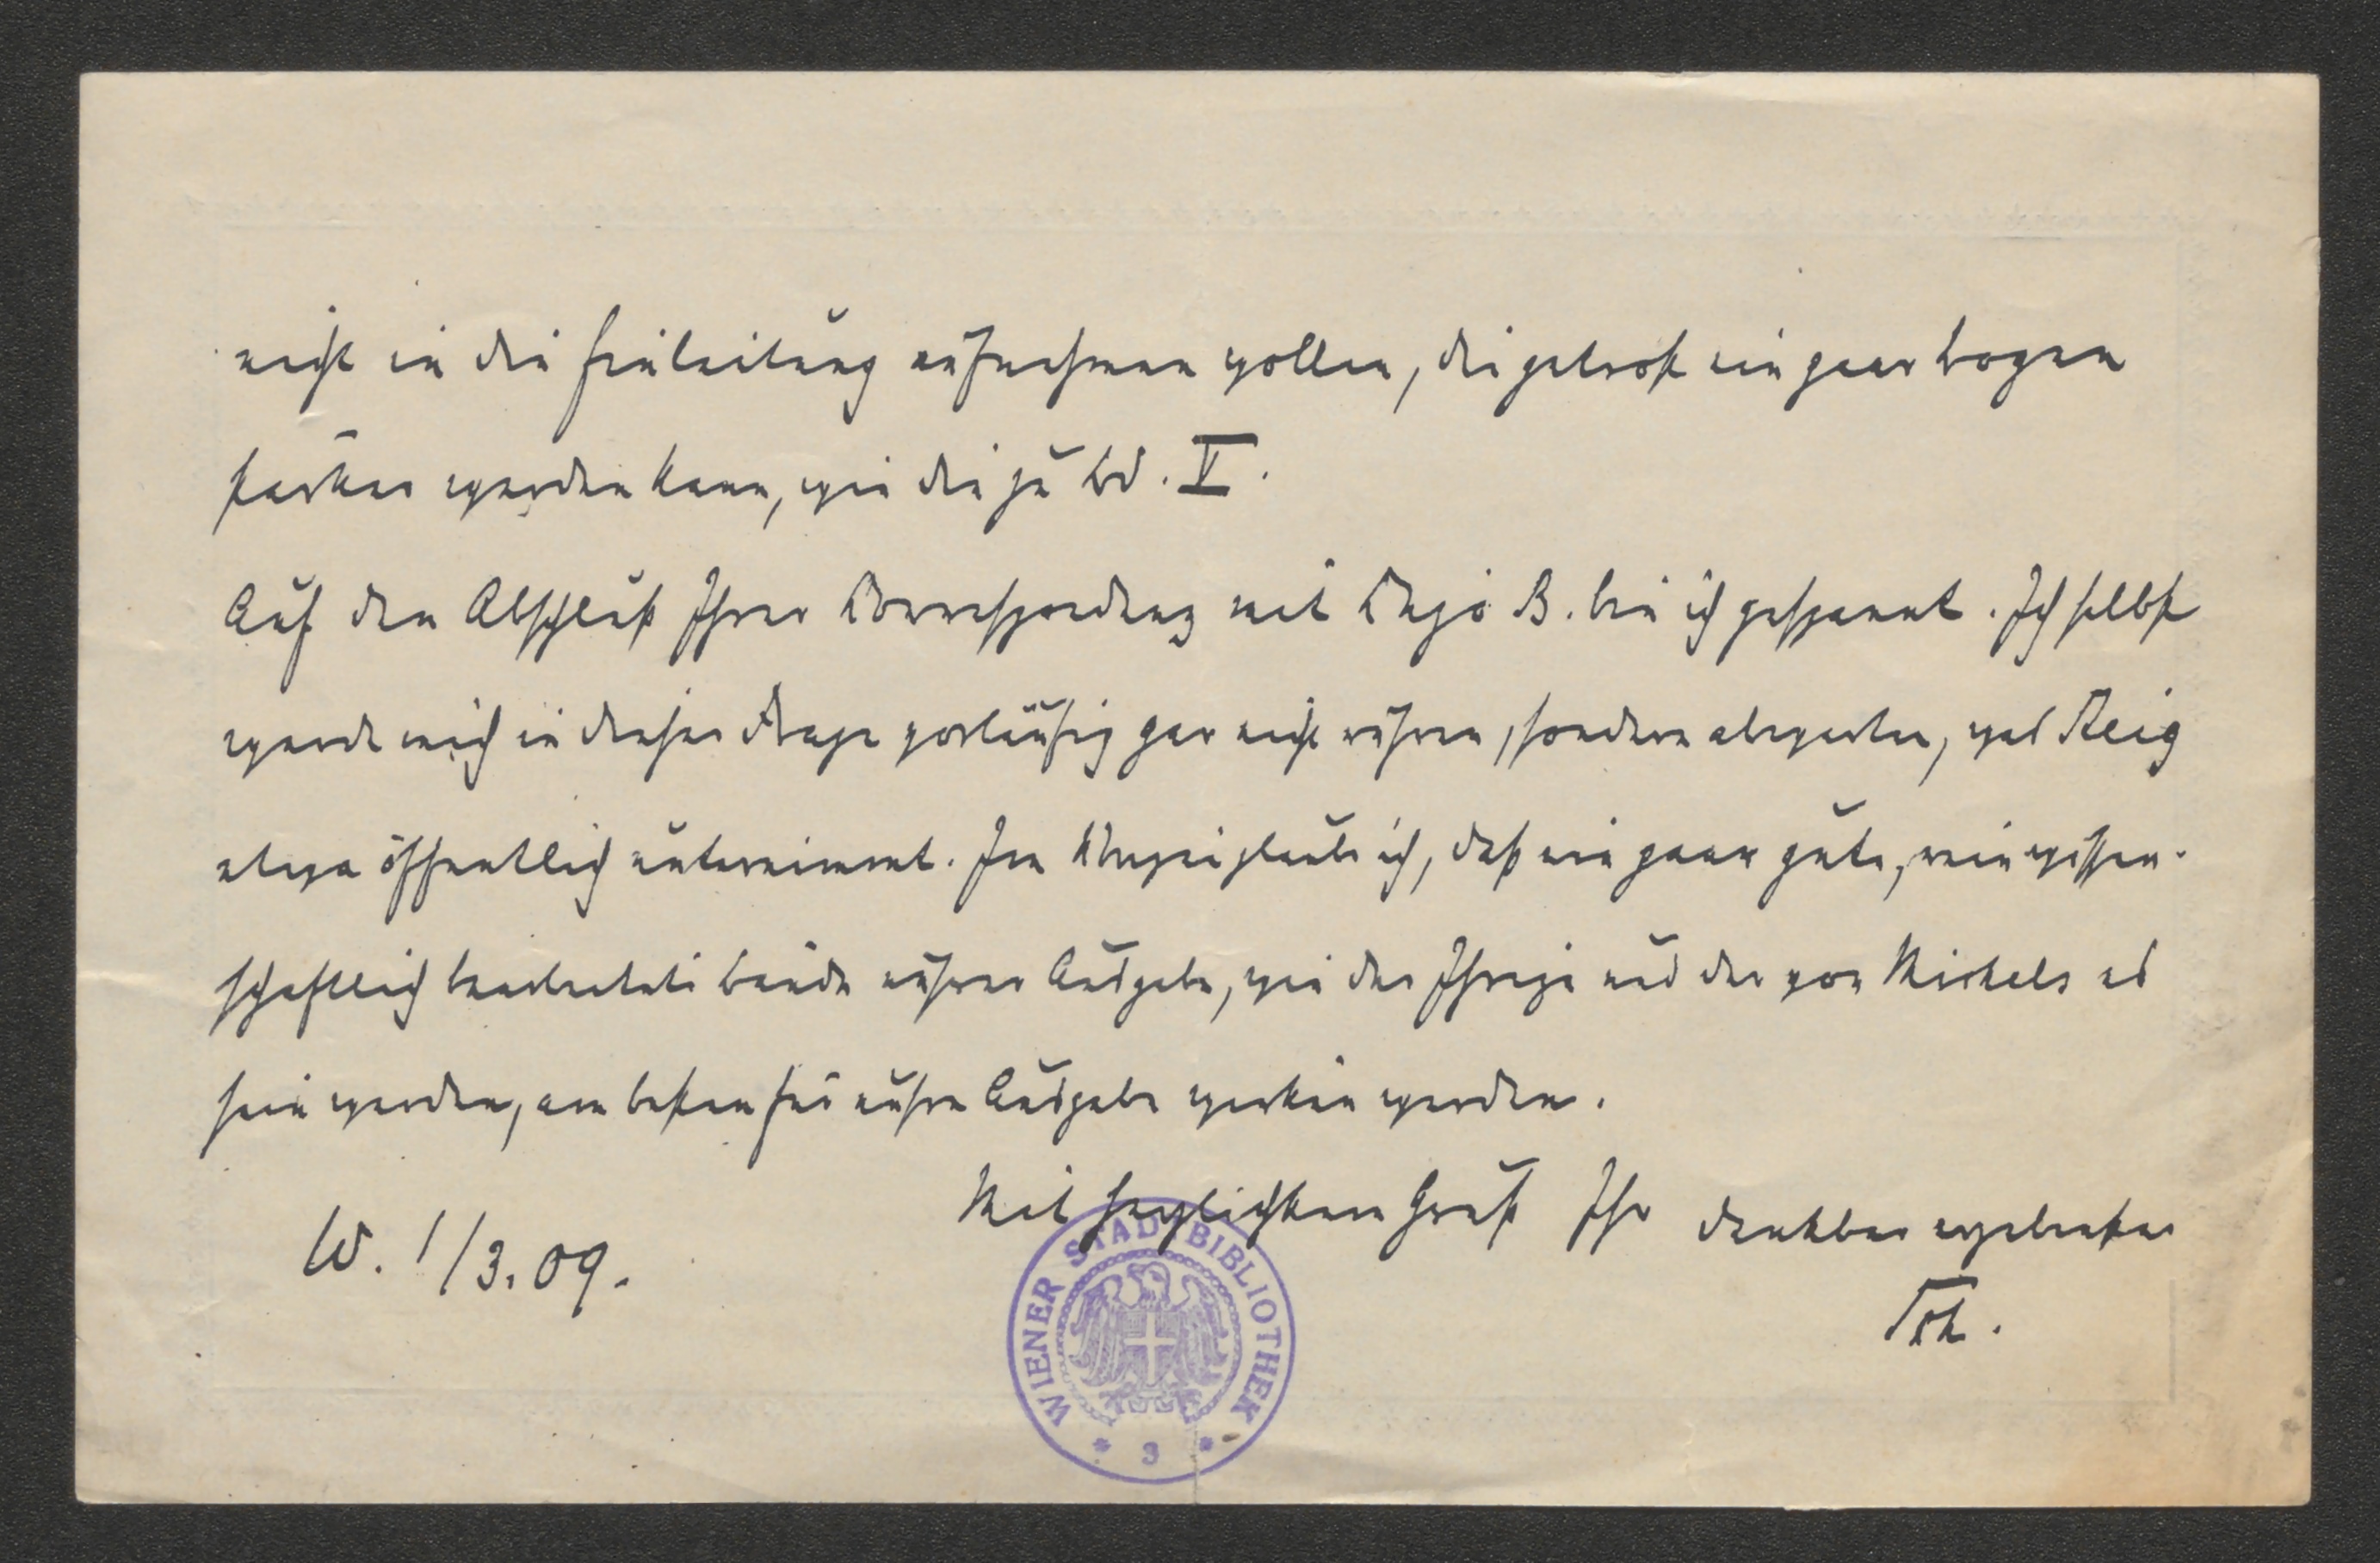 nicht in die Einleitung aufnehmen wollen, die getrost ein paar Bogen
stärker werden kann, wie die zu Bd. V.
Auf den Abschluß Ihrer Correspondenz mit B. bin ich gespannt. Ich selbst
werde mich in dieser Frage vorläufig gar nicht rühren, sondern abwarten, was Reig
etwa öffentlich unternimmt. Im glaube ich, daß ein paar gute, rein wissen-
schaftlich bearbeitete Bände unsrer Ausgabe, wie der Ihrige und der von Michels es
sein werden, am besten für unsre Ausgabe wirken werden.
Mit herzlichstem Gruß Ihr dankbar ergebenster
W. 1/3.09.
WIENER STADTBIBLIOTHEK
* 3 *